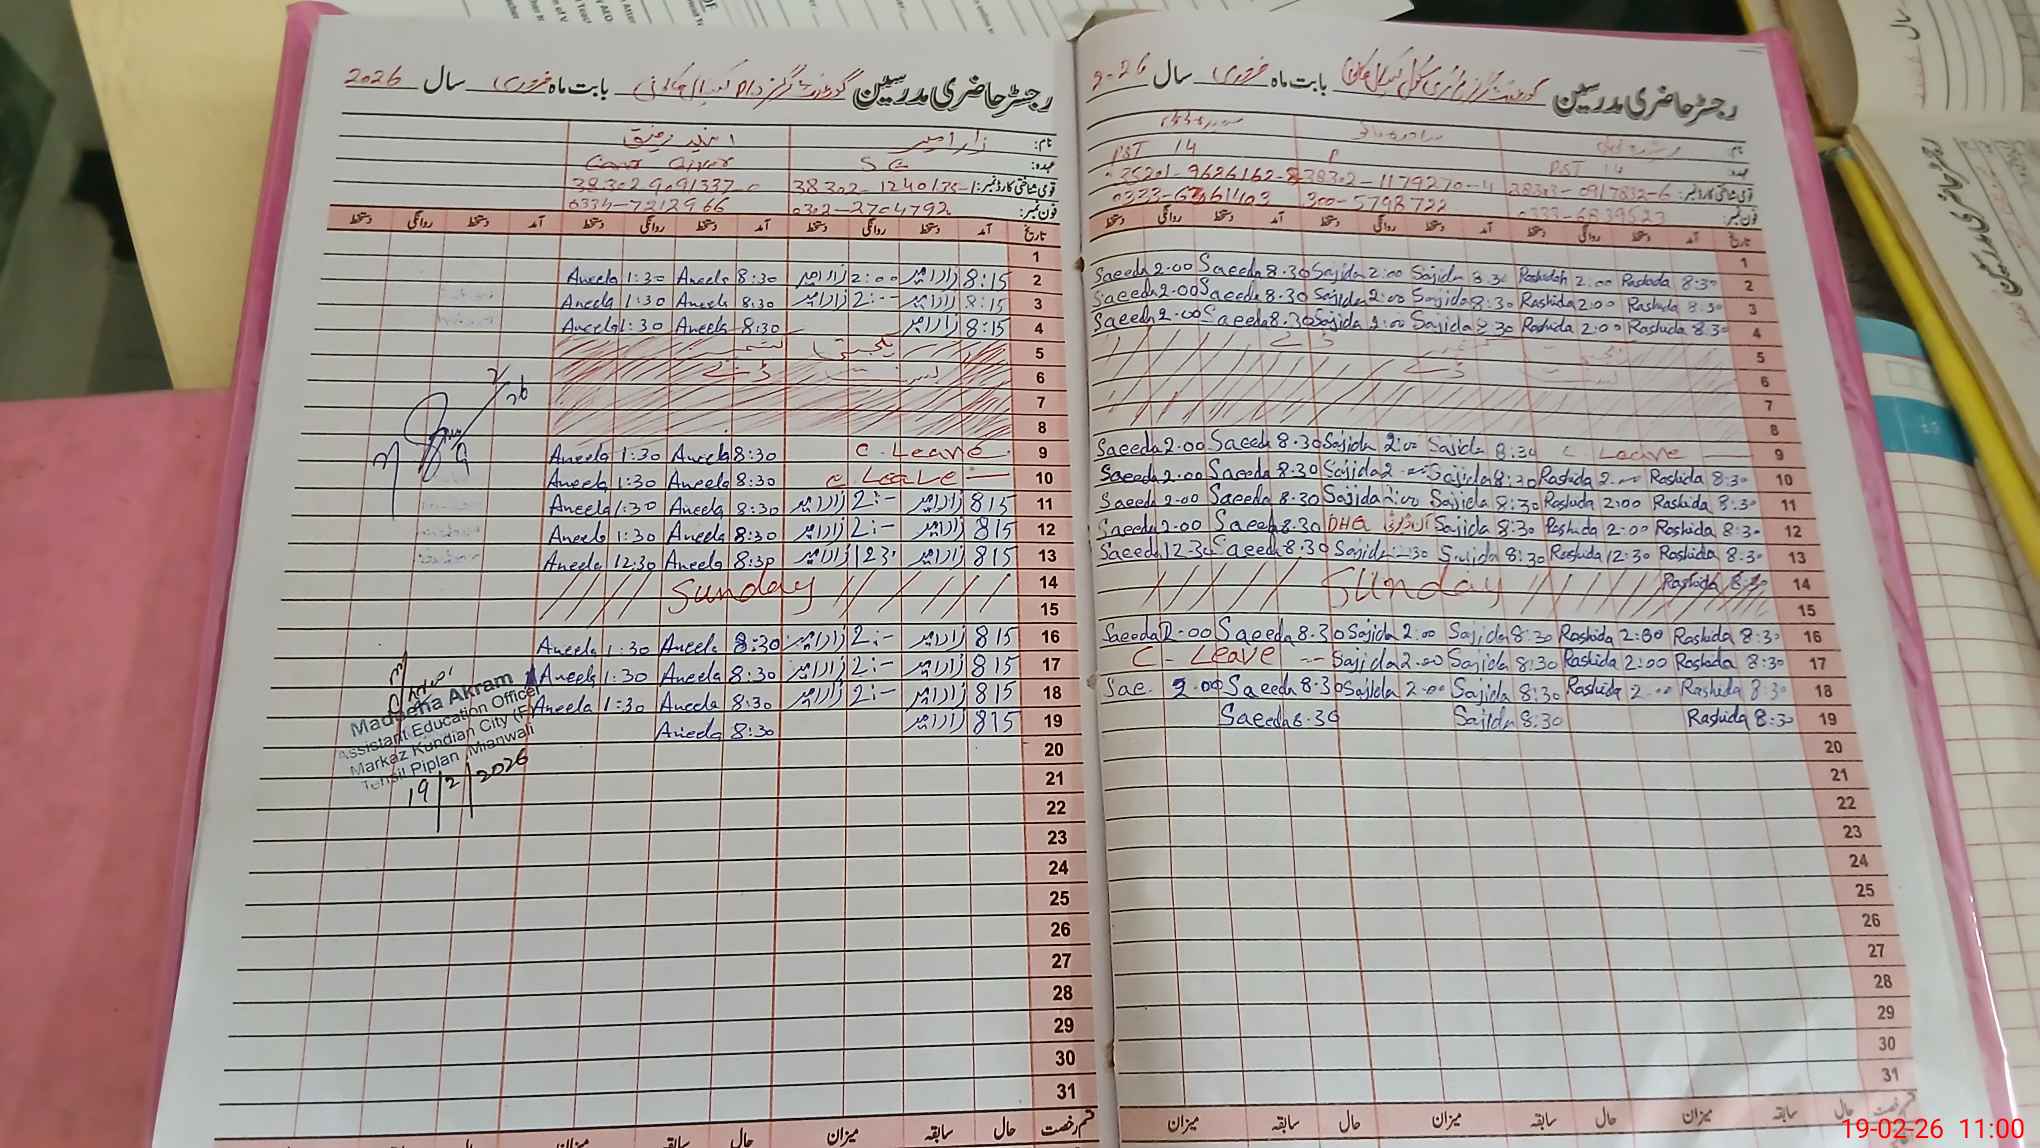 رجسٹر حاضری مدرسین گورنمنٹ گرلز بابت ماہ فروری سال 2026
نام: زارا امیر
عہدہ: S E Care Giver
قومی شناختی کارڈ نمبر: 38302-1240175-1
فون نمبر: 0302-2704792 0334-7212966
تاریخ آمد دستخط روانگی دستخط آمد دستخط روانگی دستخط آمد دستخط روانگی دستخط
1
Aneela 1:30 Aneela 8:30 زارا امیر 2:00 زارا امیر 8:15 2
Aneela 1:30 Aneela 8:30 زارا امیر 2:- زارا امیر 8:15 3
Aneela 1:30 Aneela 8:30 زارا امیر 8:15 4
یکجہتی کشمیر 5
بسنت ڈے 6
7
8
Aneela 1:30 Aneela 8:30 C. Leave 9
Aneela 1:30 Aneela 8:30 C Leave 10
Aneela 1:30 Aneela 8:30 زارا امیر 2:- زارا امیر 815 11
Aneela 1:30 Aneela 8:30 زارا امیر 2:- زارا امیر 815 12
Aneela 12:30 Aneela 8:30 زارا امیر زارا امیر 815 13
Sunday 14
15
Aneela 1:30 Aneela 8:30 زارا امیر 2:- زارا امیر 815 16
Aneela 1:30 Aneela 8:30 زارا امیر 2:- زارا امیر 815 17
Aneela 1:30 Aneela 8:30 زارا امیر 2:- زارا امیر 815 18
Aneela 8:30 زارا امیر 815 19
20
21
22
23
24
25
26
27
28
29
30
31
قسم رخصت حال سابقہ میزان حال سابقہ میزان حال
Madeeha Akram
Assistant Education Officer
Markaz Kundian City (F)
Tehsil Piplan, Mianwali
19/2/2026
رجسٹر حاضری مدرسین گورنمنٹ گرلز پرائمری سکول بابت ماہ فروری سال 2026
نام:
عہدہ: PST 14 P PST 14
قومی شناختی کارڈ نمبر: 38303-0917832-6 38302-1179270-4
فون نمبر: 0333-6839523 300-5798722
تاریخ آمد دستخط روانگی دستخط آمد دستخط روانگی دستخط آمد دستخط روانگی دستخط
1
Saeeda 2.00 Saeeda 8.30 Sajida 2:00 Sajida 8:30 Rashidah 2:00 Rashida 8:30 2
Saeeda 2.00 Saeeda 8.30 Sajida 2:00 Sajida 8:30 Rashida 2:00 Rashida 8:30 3
Saeeda 2.00 Saeeda 8.30 Sajida 2:00 Sajida 8:30 Rashida 2:00 Rashida 8:30 4
5
6
7
8
Saeeda 2.00 Saeeda 8.30 Sajida 2:00 Sajida 8:30 C Leave 9
Saeeda 2.00 Saeeda 8.30 Sajida 2:00 Sajida 8:30 Rashida 2:00 Rashida 8:30 10
Saeeda 2.00 Saeeda 8.30 Sajida 2:00 Sajida 8:30 Rashida 2:00 Rashida 8:30 11
Saeeda 2.00 Saeeda 8.30 DHQ Sajida 8:30 Rashida 2:00 Rashida 8:30 12
Saeeda 12.30 Saeeda 8.30 Sajida Sajida 8:30 Rashida 12:30 Rashida 8:30 13
Sunday Rashida 8:30 14
15
Saeeda 2.00 Saeeda 8.30 Sajida 2:00 Sajida 8:30 Rashida 2:00 Rashida 8:30 16
C - Leave Sajida 2:00 Sajida 8:30 Rashida 2:00 Rashida 8:30 17
Sae. 2.00 Saeeda 8.30 Sajida 2:00 Sajida 8:30 Rashida 2:00 Rashida 8:30 18
Saeeda 8.30 Sajida 8:30 Rashida 8:30 19
20
21
22
23
24
25
26
27
28
29
30
31
قسم رخصت حال سابقہ میزان حال سابقہ میزان حال سابقہ میزان
19-02-26 11:00